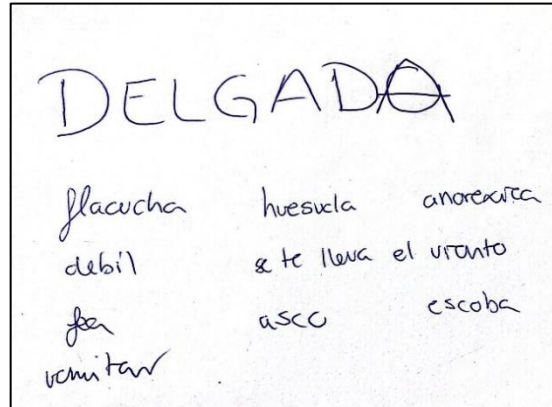 DELGADA
flacucha huesuda anorexica
debil se te lleva el viento
fea asco escoba
vomitar